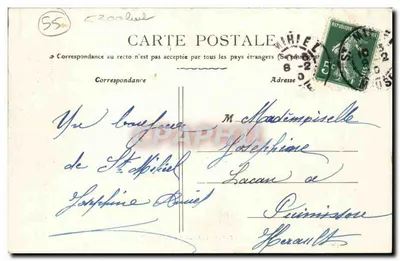 55
CARTE POSTALE
Correspondance au recto n'est pas acceptée par tous les pays étrangers
Correspondance
Adresse
Un bonjour
de St Mihiel
Joséphine
M Mademoiselle
Joséphine
Lacan a
Puimisson
Hérault